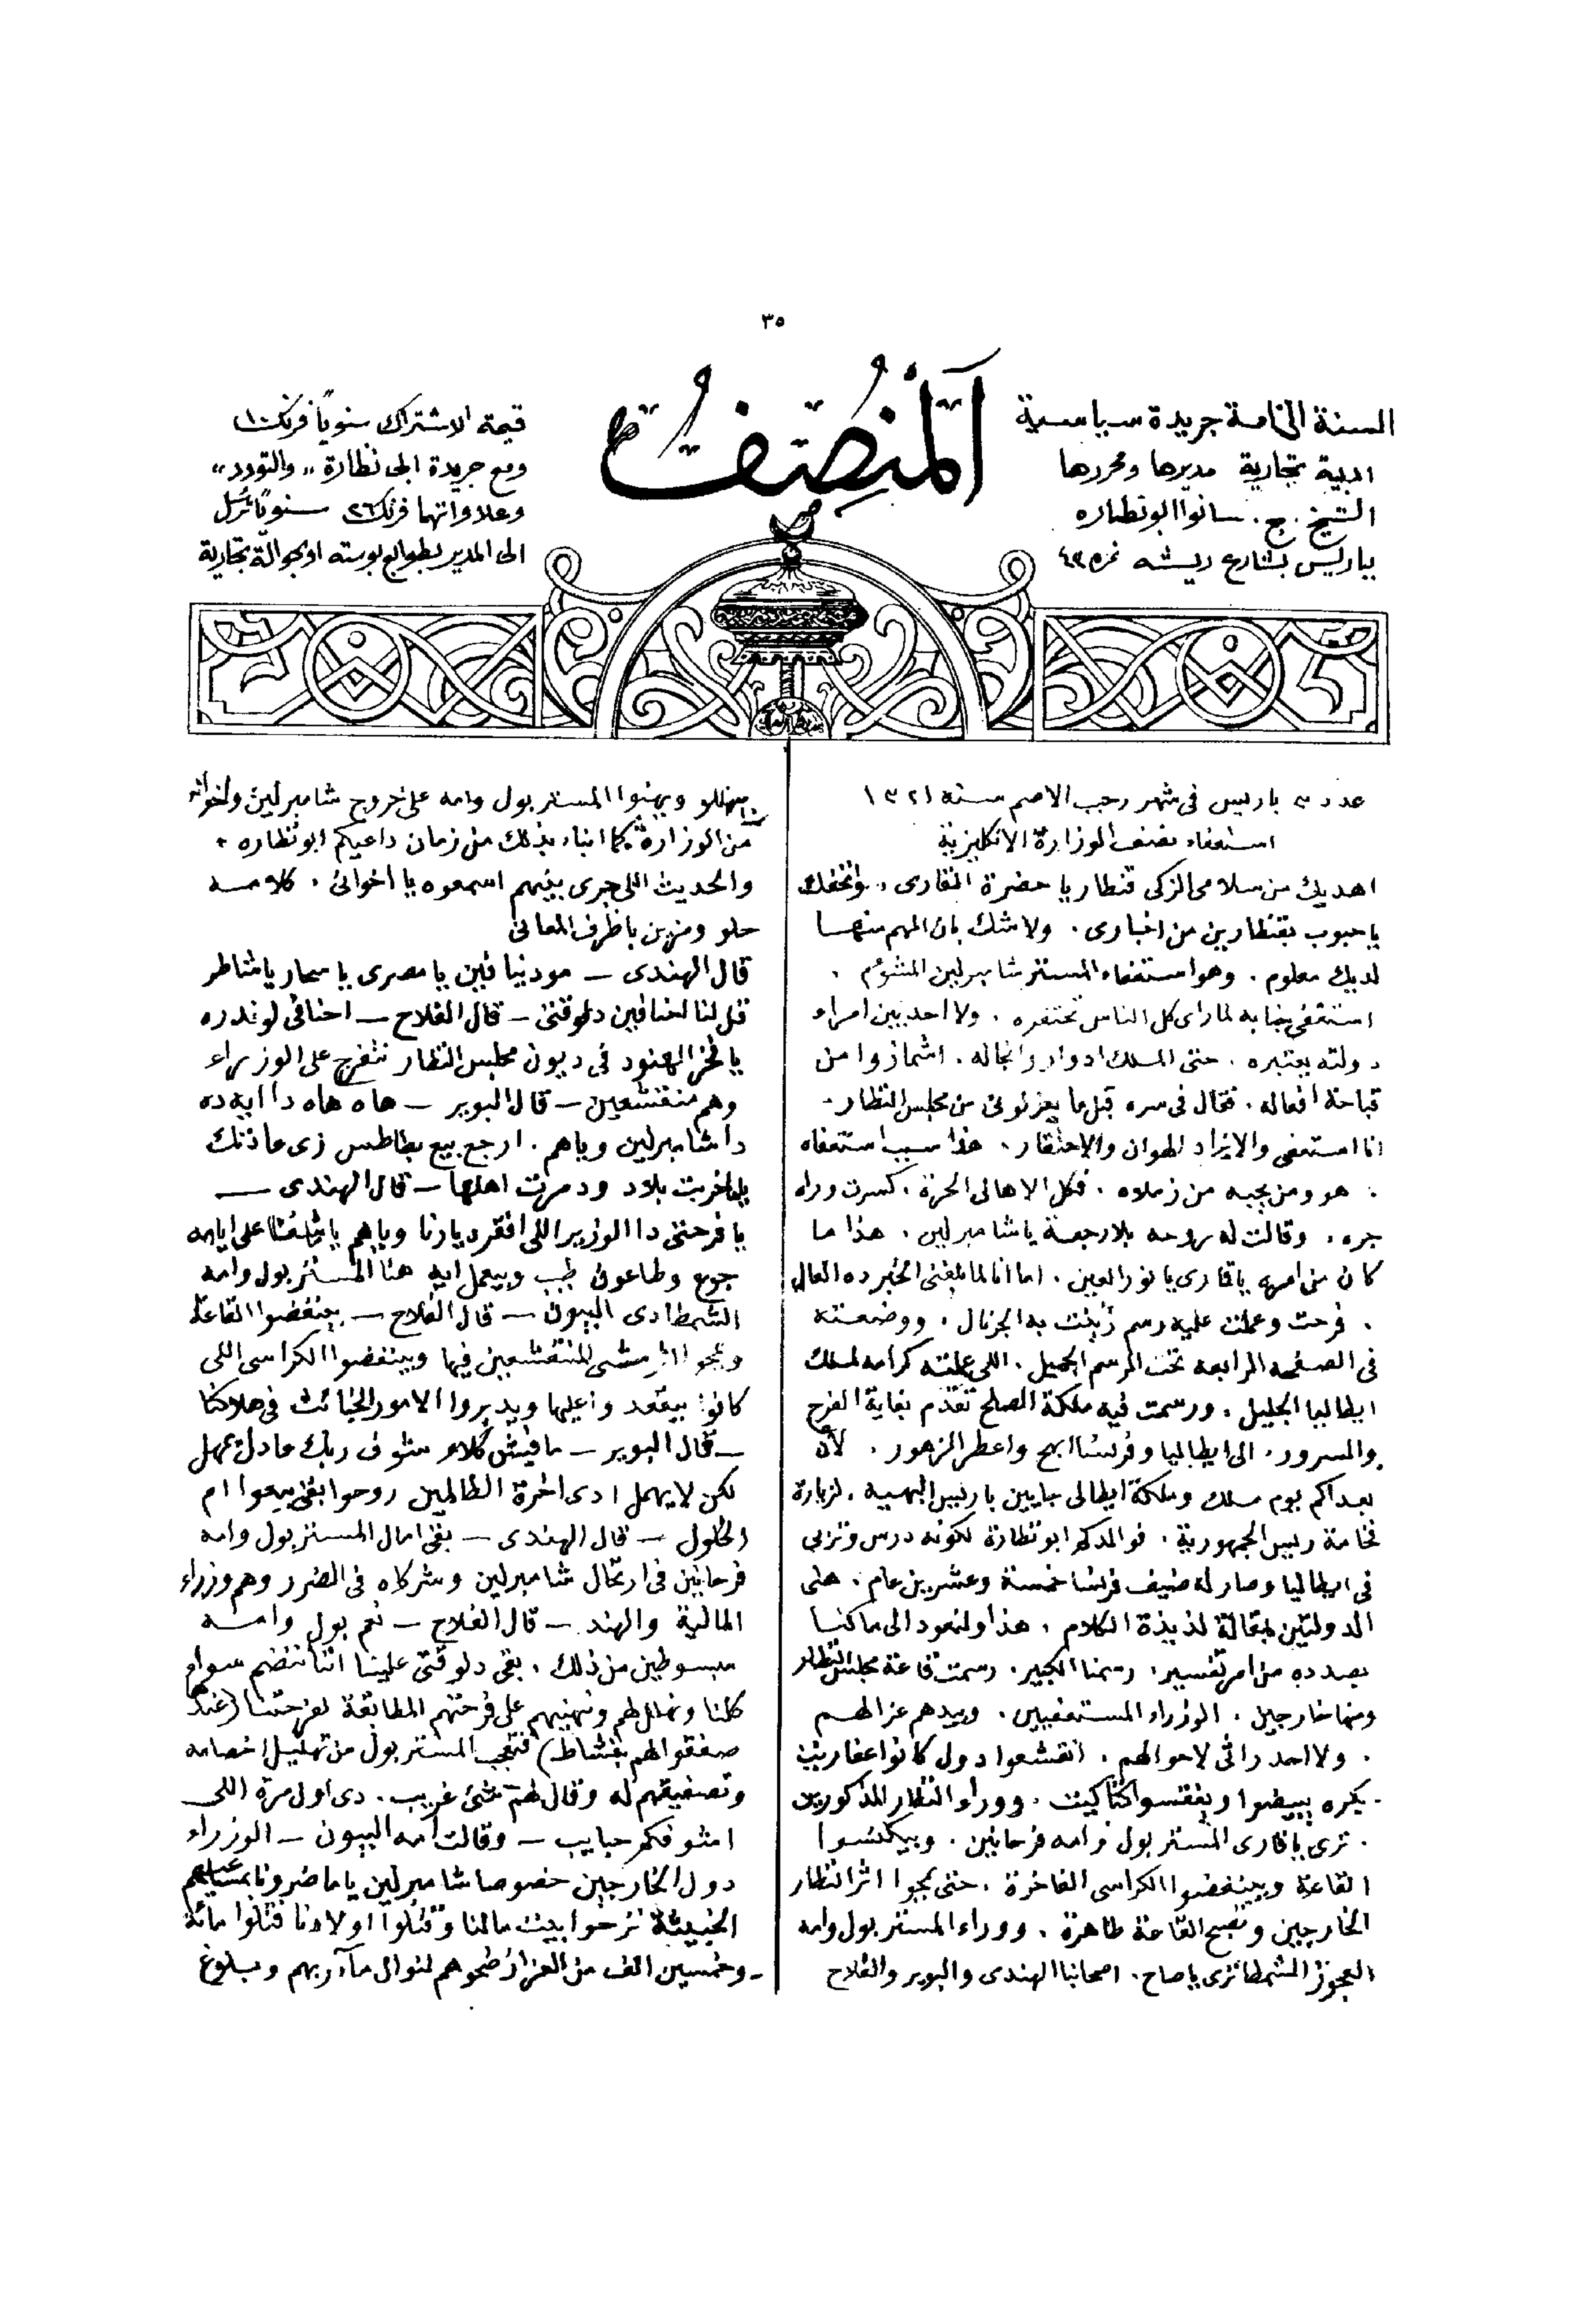 ٣٥
المنصف
السنة الخامسة جريدة سياسية
ادبية تجارية مديرها ومحررها
الشيخ . ج . سانوا ابو نظاره
بباريس بشارع ريشه نمره ٤٣
قيمة الاشتراك سنوياً فرنك ١٠
ومع جريدة ابى نظارة ,, والتودد ,,
وعلاواتهما فرنك ٢٦ سنوياً ترسل
الى المدير بطوابع بوسته او بحوالة تجارية
عدد ٣ باريس فى شهر رجب الاصم سنة ١٣٢١
استعفاء نصف الوزارة الانكليزية
اهديك من سلامى الزكى قنطار يا حضرة القارى . واتحفك
يا حبوب بقنطارين من اخبارى . ولا شك بان المهم منها
لديك معلوم . وهو استعفاء المستر شامبرلين المشوم .
استعفى جنابه لما راى كل الناس تحتقره . ولا احد بين امراء
دولته يعتبره . حتى الملك ادوار وانجاله . اشمازوا من
قباحة افعاله . فقال فى سره قبل ما يعزلونى من مجلس النظار -
انا استعفى والا يزاد الهوان والاحتقار . هذا سبب استعفاه
. هو ومن يحبه من زملاه . فكل الاهالى الحرة . كسرت وراه
جره . وقالت له روحه بلا رجعة يا شامبرلين . هذا ما
كان من امره يا قارى يا نور العين . اما انا لما بلغنى الخبر ده العال
. فرحت وعملت عليه رسم زينت به الجرنال . ووضعته
فى الصفحه الرابعه تحت الرسم الجميل . اللى عملته كرامه لملك
ايطاليا الجليل . ورسمت فيه ملكة الصلح تقدم بغاية الفرح
والسرور . الى ايطاليا وفرنسا ابهج واعطر الزهور . لأن
بعد اكم يوم ملك وملكة ايطالى جايين باريس البهية . لزيارة
فخامة رييس الجمهورية . فوالدكم ابو نظارة لكونه درس وتربى
فى ايطاليا وصار له ضيف فرنسا خمسة وعشرين عام . هنى
الدولتين بمقالة لذيذة الكلام . هذا ولنعود الى ما كنا
بصدده من امر تفسير . رسمنا الكبير . رسمت قاعة مجلس النظار
ومنها خارجين . الوزراء المستعفيين . وبيدهم عزالهم
. ولا احد راثى لاحوالهم . انقشعوا دول كانوا عفاريت
- بكره يبيضوا ويفقسوا كتاكيت . ووراء النظار المذكورين
. ترى يا قارى المستر بول وامه فرحانين . وبيكنسوا
القاعة وبينفضوا الكراسى الفاخرة . حتى يمحوا اثر النظار
الخارجين وتصبح القاعة طاهرة . ووراء المستر بول وامه
العجوز الشمطا ترى يا صاح . اصحابنا الهندى والبوير والفلاح
بيهللو ويهنوا المستر بول وامه على خروج شامبرلين واخوانه
من الوزارة كما انباء بذلك من زمان داعيكم ابو نظاره .
والحديث اللى جرى بينهم اسمعوه يا اخوانى . كلامه
حلو ومزين باظرف المعانى
قال الهندى — مودينا فين يا مصرى يا سحار يا شاطر
قل لنا احنا فين دلوقتى — قال الفلاح — احنا فى لوندره
يا فخر الهنود فى ديون مجلس النظار نتفرج على الوزراء
وهم منقشعين — قال البوير — هاه هاه دا ايه ده
دا شامبرلين وياهم . ارجع بيع بطاطس زى عادتك
ياما خربت بلاد ودمرت اهلها — قال الهندى —
يا فرحتى دا الوزير اللى افقر ديارنا وياهم ياما شفنا على ايامه
جوع وطاعون طيب وبيعمل ايه هنا المستر بول وامه
الشمطا دى البيون — قال الفلاح — بينفضوا القاعة
ويمحوا اثر مشى المنقشعين فيها وبينفضوا الكراسى اللى
كانوا بيقعدوا عليها ويدبروا الامور الخبائث فى هلاكنا
— قال البوير — ما فيش كلام شوف ربك عادل يمهل
لكن لا يهمل ادى اخرة الظالمين روحوا بقى بيعوا ام
الخلول — قال الهندى — بقى امال المستر بول وامه
فرحانين فى ارتحال شامبرلين وشركاه فى الضرر وهم وزراء
المالية والهند . — قال الفلاح — نعم بول وامه
مبسوطين من ذلك . بقى دلوقتى علينا اننا ننضم سواء
كلنا ونهلل لهم ونهنيهم على فرحتهم المطابقة لفرحتنا (عندها
صفقوا لهم بنشاط) فتعجب المستر بول من تهليل اخصامه
وتصفيقهم له وقال لهم شئ غريب . دى اول مرة اللى
اشوفكم حبايب — وقالت امه البيون — الوزراء
دول الخارجين خصوصا شامبرلين ياما ضرونا بسياستهم
الخبيثة نزحوا بيت مالنا وقتلوا اولادنا قتلوا مائة
وخمسين الف من العزاز ضحوهم لنوال مآربهم وبلوغ